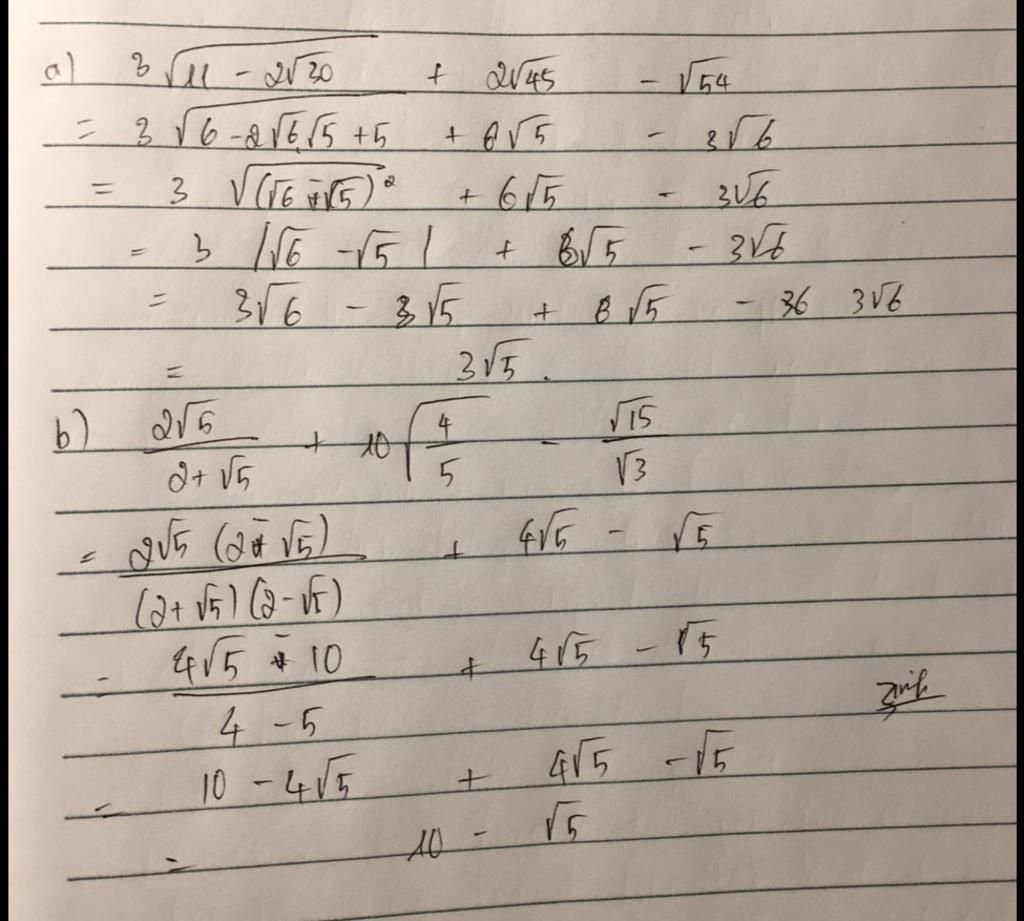 a) 3√(11 - 2√30) + 2√45 - √54
= 3√(6 - 2√6.√5 + 5) + 6√5 - 3√6
= 3√((√6 - √5)²) + 6√5 - 3√6
= 3|√6 - √5| + 6√5 - 3√6
= 3√6 - 3√5 + 6√5 - 3√6
= 3√5.
b) 2√5/(2 + √5) + 10√(4/5) - √15/√3
= 2√5(2 - √5)/((2 + √5)(2 - √5)) + 4√5 - √5
= (4√5 - 10)/(4 - 5) + 4√5 - √5
= 10 - 4√5 + 4√5 - √5
= 10 - √5